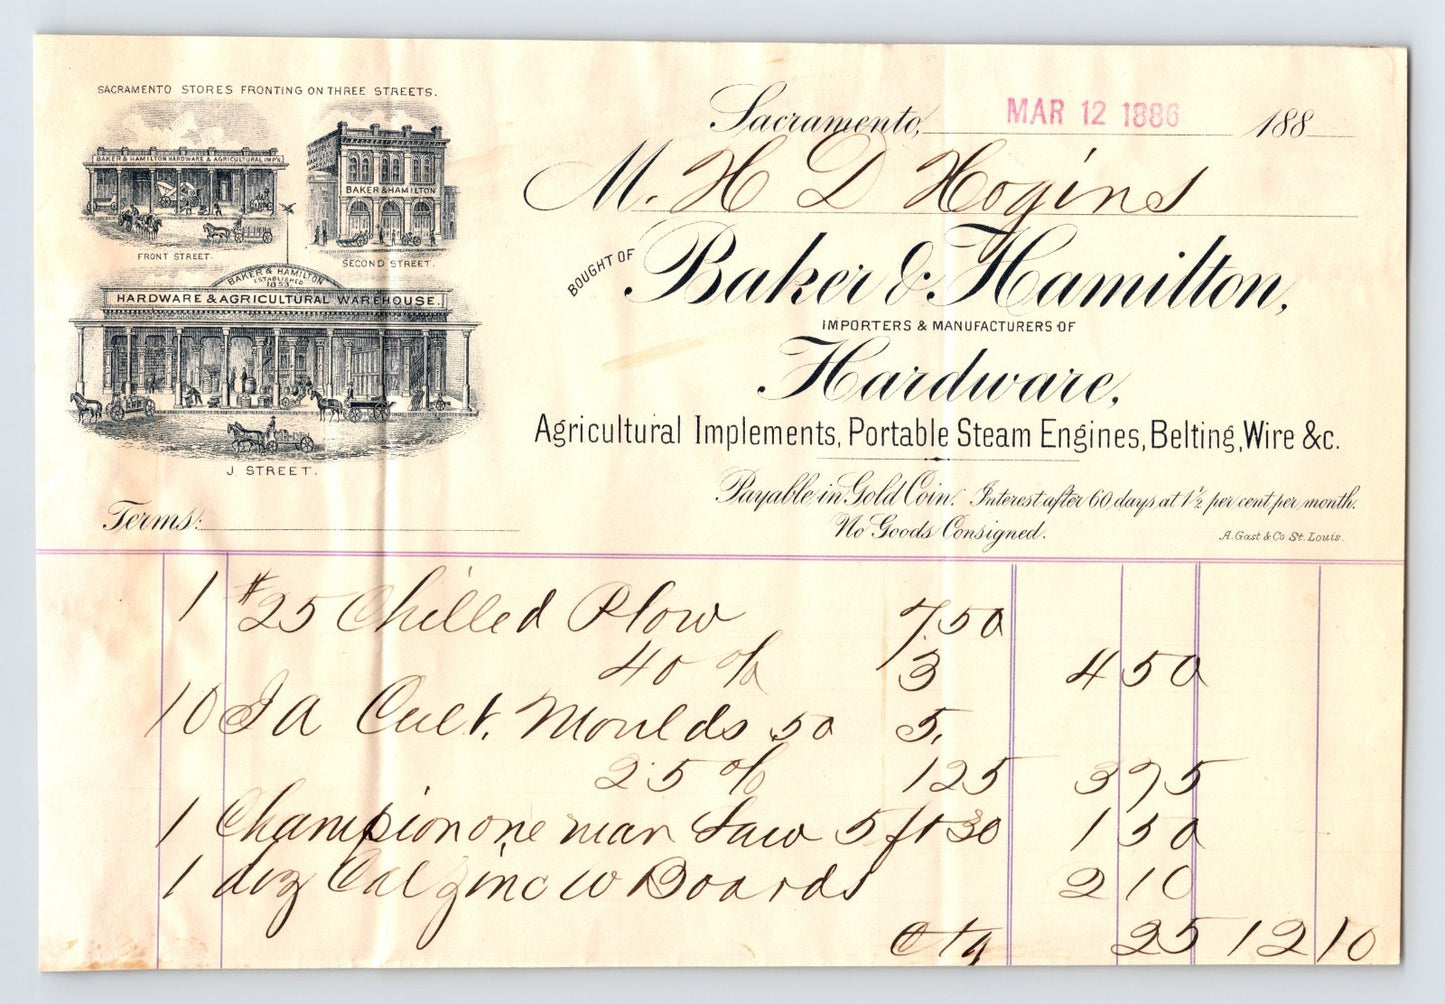 SACRAMENTO STORES FRONTING ON THREE STREETS.
BAKER & HAMILTON HARDWARE & AGRICULTURAL IMP'S
FRONT STREET.
BAKER & HAMILTON
SECOND STREET.
BAKER & HAMILTON
ESTABLISHED
1853
HARDWARE & AGRICULTURAL WAREHOUSE.
J. STREET.
Sacramento, MAR 12 1886 188
M. H D Hogins
BOUGHT OF Baker & Hamilton,
IMPORTERS & MANUFACTURERS OF
Hardware,
Agricultural Implements, Portable Steam Engines, Belting, Wire &c.
Payable in Gold Coin. Interest after 60 days at 1½ per cent per month.
No Goods Consigned.
A. Gast & Co. St. Louis.
Terms:
1 #25 Chilled Plow 7.50
40 % 3 4 50
10 I A Cult. Moulds .50 5.
25 % 125 3 75
1 Champion one man Saw 5 ft 30 1 50
1 doz Cal zinc W Boards 2 10
Ctg 25 12 10